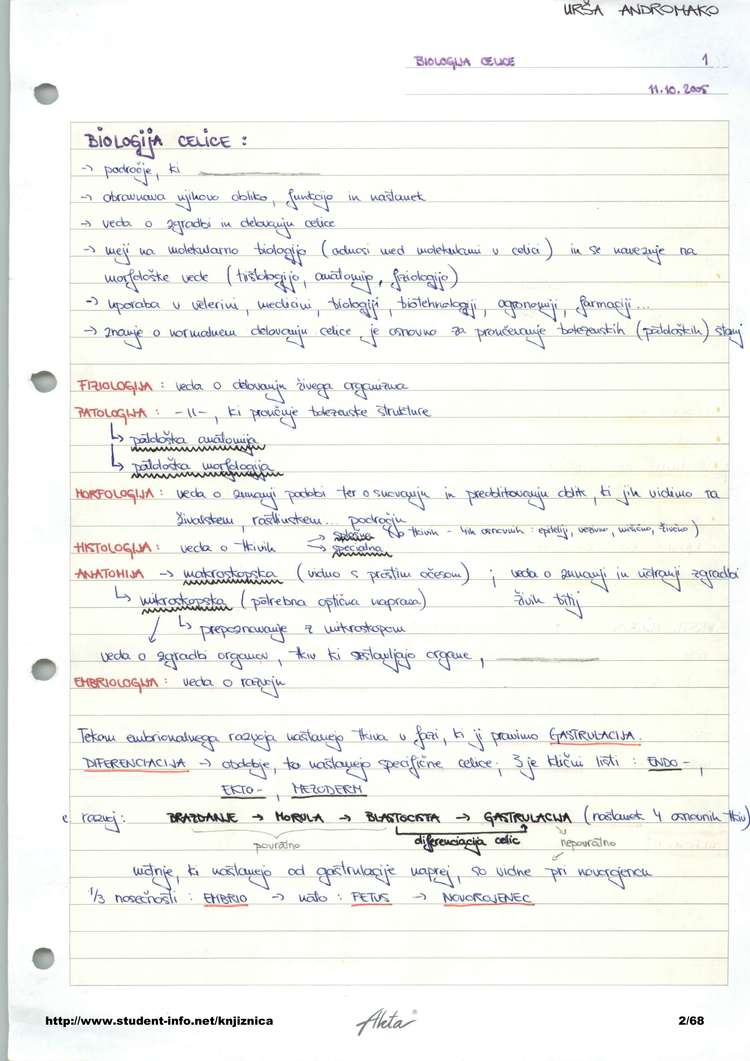 URŠA ANDROMAKO
BIOLOGIJA CELICE 1
11.10.2005
BIOLOGIJA CELICE :
→ področje, ki
→ obravnava njihovo obliko, funkcijo in nastanek
→ veda o zgradbi in delovanju celice
→ meji na molekularno biologijo (odnosi med molekulami v celici) in se navezuje na
morfološke vede (histologijo, anatomijo, fiziologijo)
→ uporaba v veterini, medicini, biologiji, biotehnologiji, agronomiji, farmaciji...
→ znanje o normalnem delovanju celice je osnovno za proučevanje bolezenskih (patoloških) stanj
FIZIOLOGIJA : veda o delovanju živega organizma
PATOLOGIJA : -11-, ki proučuje bolezenske strukture
↳ patološka anatomija
↳ patološka morfologija
MORFOLOGIJA : veda o zunanji podobi ter osnovanju in preoblikovanju oblik, ki jih vidimo na
živalskem, rastlinskem... področju
HISTOLOGIJA : veda o tkivih → splošna (o tkivih - 4ih osnovnih : epitelij, vezivno, mišično, živčno)
→ specialna
ANATOMIJA → makroskopska (vidno s prostim očesom) ; veda o zunanji in notranji zgradbi
↳ mikroskopska (potrebna optična naprava) živih bitij
↳ prepoznavanje z mikroskopom
veda o zgradbi organov, tkiv ki sestavljajo organe,
EMBRIOLOGIJA : veda o razvoju
Tekom embrionalnega razvoja nastanejo tkiva v fazi, ki ji pravimo GASTRULACIJA.
DIFERENCIACIJA → obdobje, ko nastanejo specifične celice; 3 je klični listi : ENDO-,
EKTO-, MEZODERM
razvoj : BRAZDANJE → MORULA → BLASTOCISTA → GASTRULACIJA (nastanek 4 osnovnih tkiv)
povratno diferenciacija celic nepovratno
motnje, ki nastanejo od gastrulacije naprej, so vidne pri novorojencu
1/3 nosečnosti : EMBRIO → nato : FETUS → NOVOROJENEC
http://www.student-info.net/knjiznica Akta 2/68